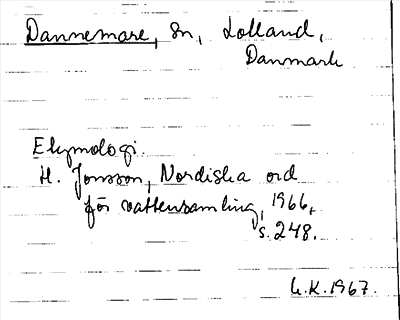 Dannemare, Sn, Lolland,
Danmark
Etymologi.
H. Jonsson, Nordiska ord
för vattensamling, 1966,
s. 248.
G.K. 1967.